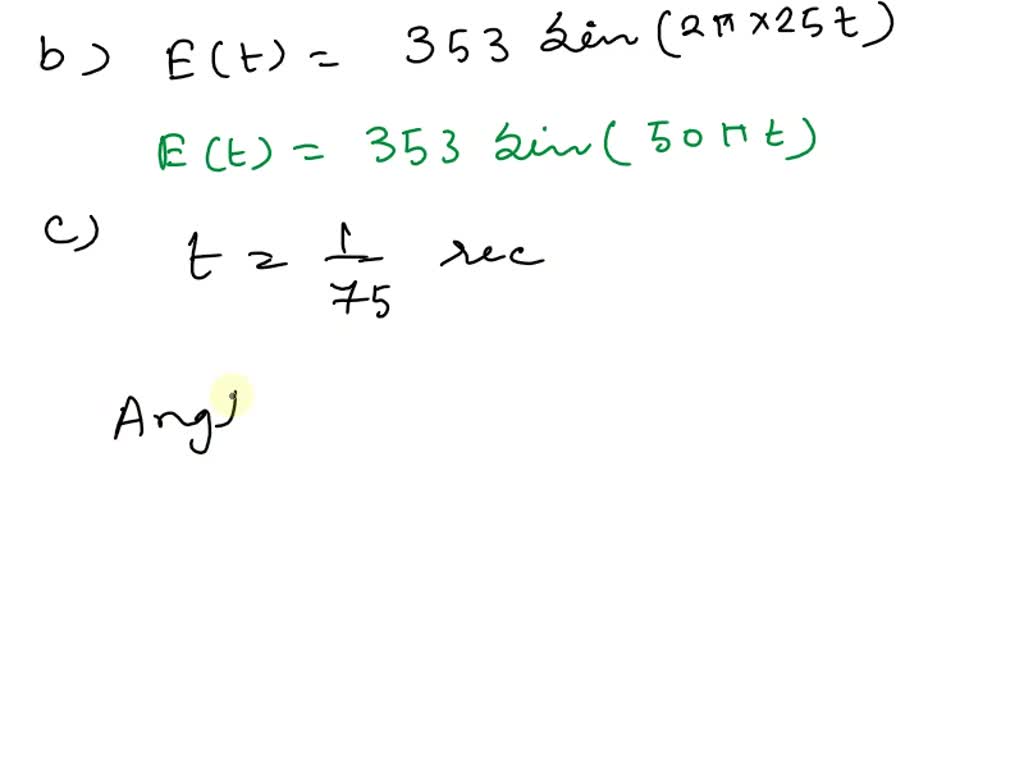 b) E(t) = 353 sin(2π×25t)
E(t) = 353 sin(50πt)
c) t = 1/75 sec
Angl